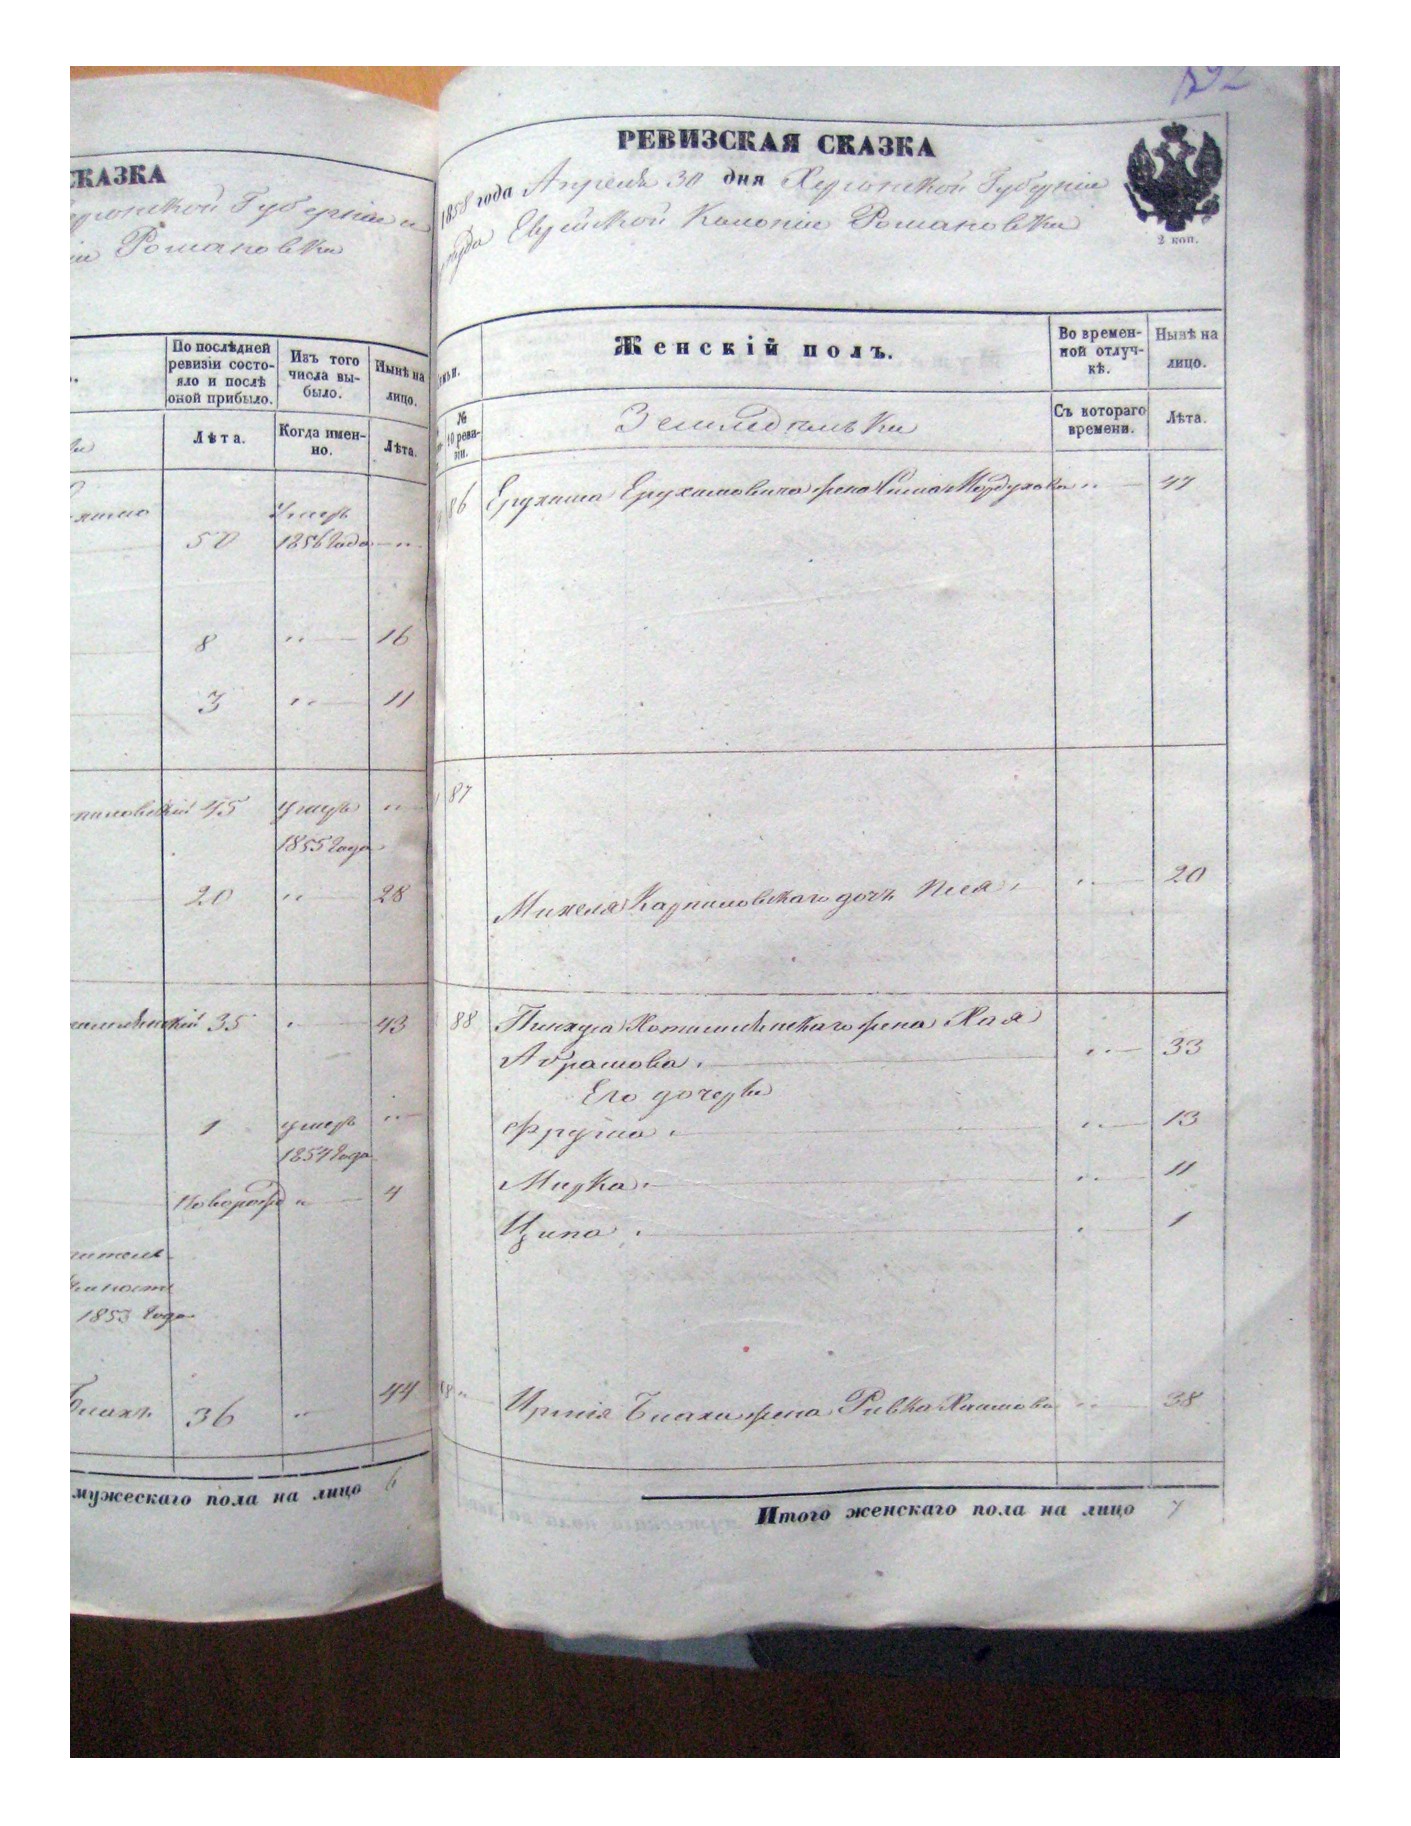 КАЗКА
Херсонской Губерніи и
Романовки
По послѣдней ревизіи состояло и послѣ оной прибыло.
Изъ того числа выбыло.
Нынѣ на лицо.
Лѣта.
Когда именно.
Лѣта.
50
Умеръ
1856 года
8
16
3
11
45
умеръ
1855 года
20
28
35
43
1
умеръ
1854 года
Новорожд
4
1853 года
36
44
мужескаго пола на лицо 6
РЕВИЗСКАЯ СКАЗКА
1858 года Апреля 30 дня Херсонской Губерніи
Еврейской Колоніи Романовки
2 коп.
Женскій полъ.
Во временной отлучкѣ.
Нынѣ на лицо.
№ 10 ревизіи.
Земледельки
Съ котораго времени.
Лѣта.
86
Ерухима Ерухимовича жена Сима Мордухова
47
87
Михеля Карпиловскаго дочь Песя
20
88
Пинхуса жена Хая
Абрамова
33
Его дочери
Фрума
13
Мирка
11
Ципа
1
жена Ривка Хаимова
38
Итого женскаго пола на лицо 7